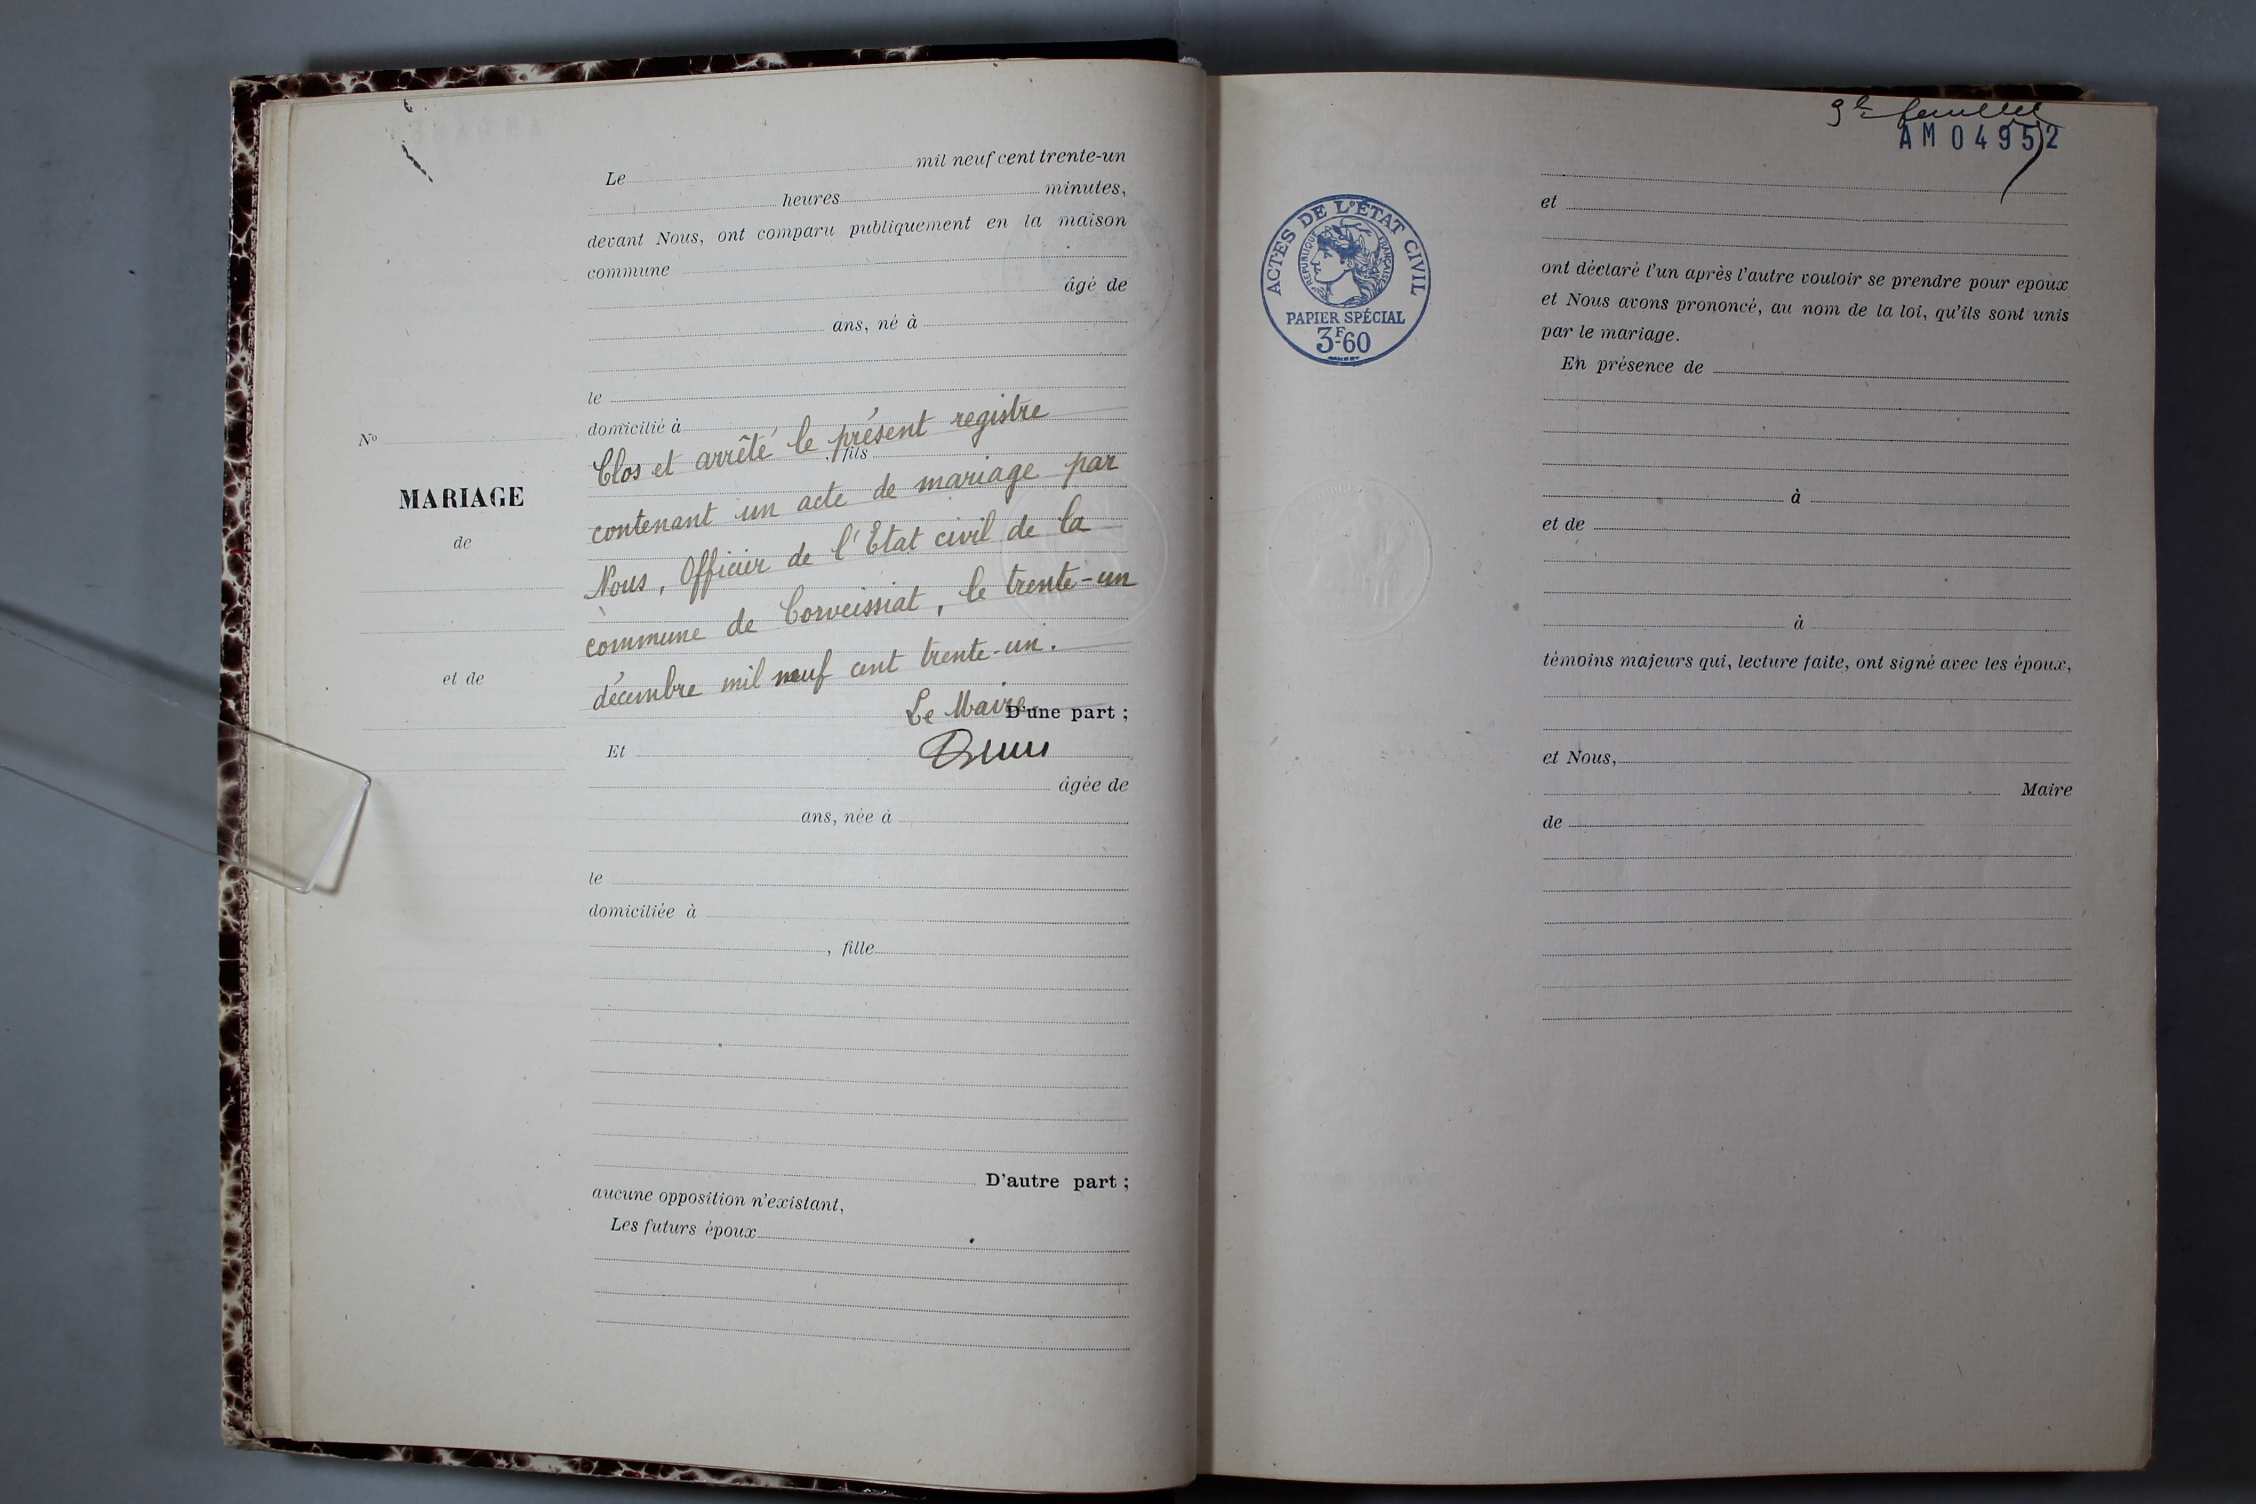 Le mil neuf cent trente-un
heures minutes,
devant Nous, ont comparu publiquement en la maison
commune
âgé de
ans, né à
le
domicilié à
Clos et arrêté le présent registre
, fils
contenant un acte de mariage par
Nous, Officier de l'Etat civil de la
commune de Corveissiat, le trente-un
décembre mil neuf cent trente-un.
Le Maire
D'une part ;
Et
âgée de
ans, née à
le
domiciliée à
, fille
D'autre part ;
aucune opposition n'existant,
Les futurs époux
No
MARIAGE
de
et de
9e feuillet
AM 04952
ACTES DE L'ÉTAT CIVIL
RÉPUBLIQUE FRANÇAISE
PAPIER SPÉCIAL
3F60
et
ont déclaré l'un après l'autre vouloir se prendre pour époux
et Nous avons prononcé, au nom de la loi, qu'ils sont unis
par le mariage.
En présence de
à
et de
à
témoins majeurs qui, lecture faite, ont signé avec les époux,
et Nous,
Maire
de